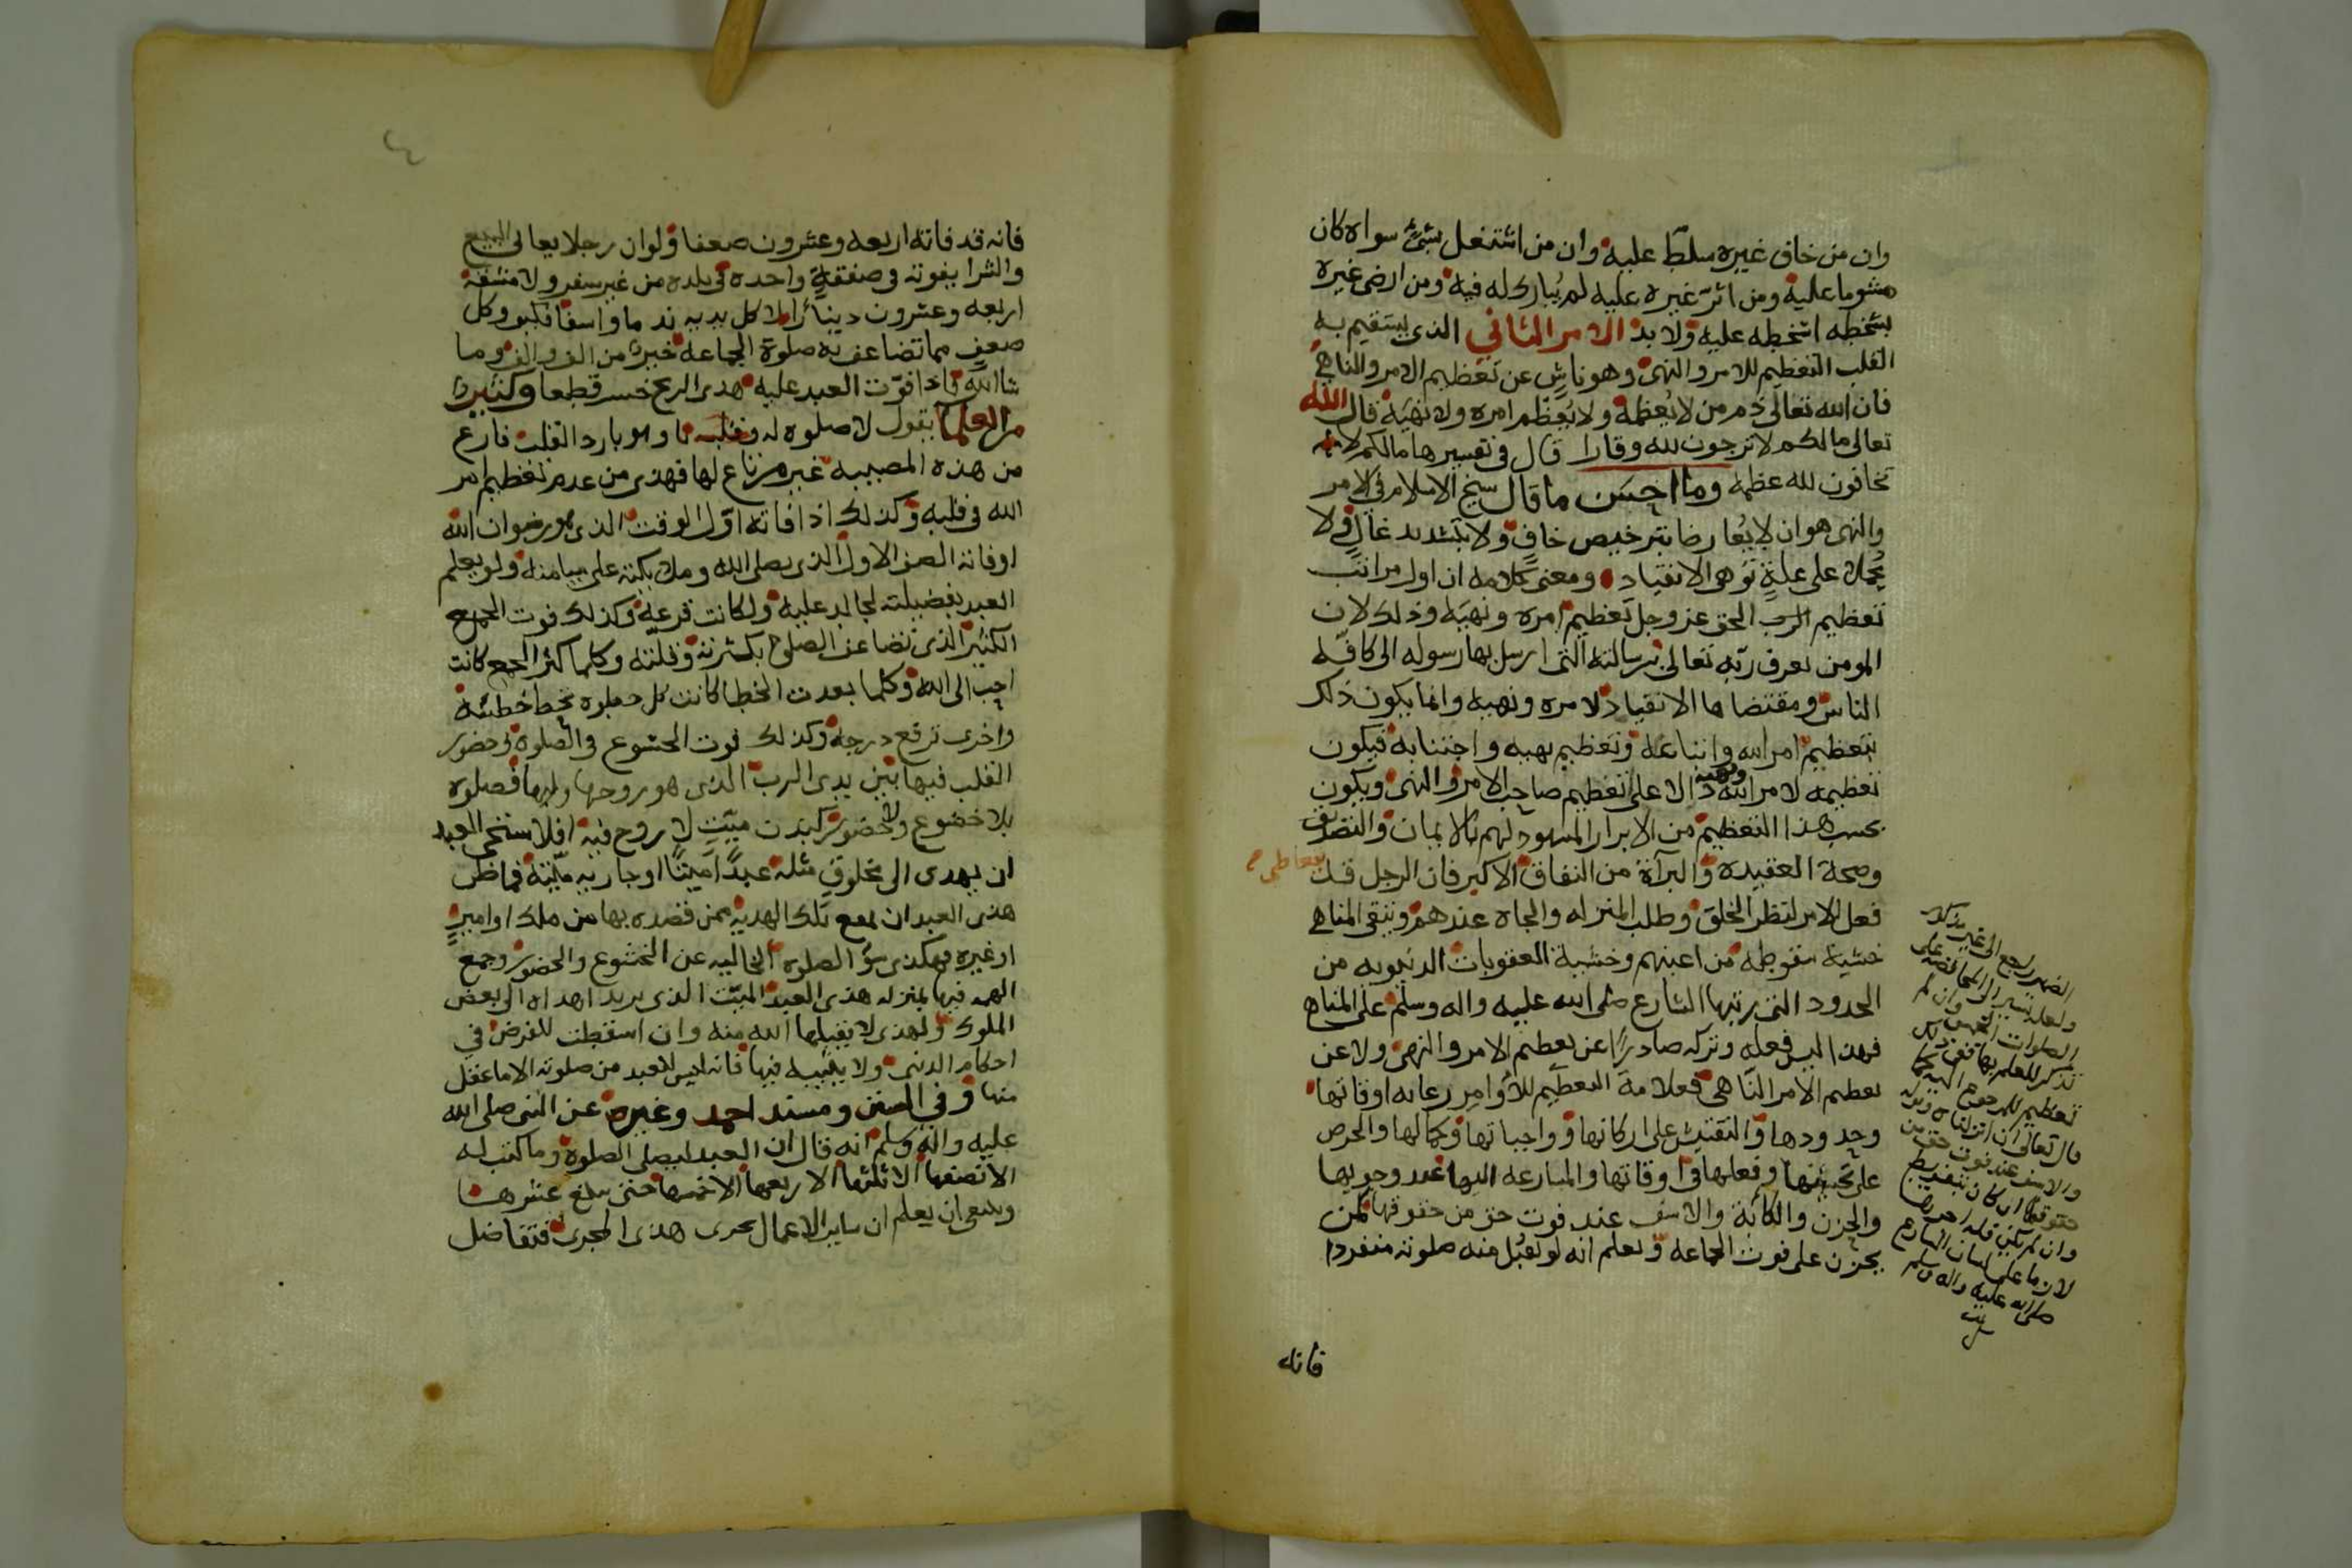 وان من خاف غيره سلط عليه وان من اشتغل بشئ سواه كان
مشوما عليه ومن اثر غيره عليه لم يبارك له فيه ومن ارضى غيره
بسخطه اسخطه عليه ولا بد الامر الثاني الذى يستقيم به
القلب التعظيم للامر والنهى وهو ناش عن تعظيم الامر والناهى
فان الله تعالى ذم من لا يعظمه ولا يعظم امره ولا نهيه قال الله
تعالى مالكم لا ترجون لله وقارا قال فى تفسيرها مالكم لا
تخافون لله عظمة وما احسن ما قال شيخ الاسلام فى الامر
والنهى هو ان لا يعارضا بترخيص جاف ولا بتشديد غال ولا
يحملا على علة توهى الانقياد ومعنى كلامه ان اول مراتب
تعظيم الرب الحق عز وجل تعظيم امره ونهيه وذلك لان
المومن يعرف ربه تعالى برسالته التى ارسل بها رسوله الى كافة
الناس ومقتضاها الانقياد لامره ونهيه وانما يكون ذلك
بتعظيم امر الله واتباعه وتعظيم نهيه واجتنابه فيكون
تعظيمه لامر الله ونهيه دالا على تعظيم صاحب الامر والنهى ويكون
بحسب هذا التعظيم من الابرار المشهود لهم بالايمان والتصديق
وصحة العقيده والبرآة من النفاق الاكبر فان الرجل قد يتعاطى
فعل الامر لنظر الخلق وطلب المنزله والجاه عندهم ويتقى المناهى
خشية سقوطه من اعينهم وخشية العقوبات الدنيويه من
الحدود التى رتبها الشارع صلى الله عليه واله وسلم على المناهى
فهذا ليس فعله وتركه صادرا عن تعظيم الامر والنهى ولا عن
تعظيم الامر الناهى فعلامة التعظيم للأوامر رعايه اوقاتها
وحدودها والتفتيش على اركانها وواجباتها وكمالها والحرص
على تحينها وفعلها فى اوقاتها والمسارعه اليها عند وجوبها
والحزن والكآبة والاسف عند فوت حق من حقوقها كمن
يحزن على فوت الجماعه ويعلم انه لو تقبل منه صلوته منفردا
فانه
الضمير راجع الى غير مذكور
ولعله تشير الى المحافظه على
الصلوات الخمس وان لم
تذكر للعلم بها ففى ذلك
تعظيم للمرجوع اليه كما
قال تعالى انا انزلناه وتركه
والاسف عند فوت حق من
حقوقها ان كان بتفريط
وان لم يكن فله اجرها
لان ما على لسان الشارع
صلى الله عليه واله وسلم
فانه قد فاته اربعه وعشرون ضعفا ولو ان رجلا يعانى البيع
والشرا يفوته فى صفقة واحده فى بلده من غير سفر ولا مشقة
اربعه وعشرون دينارا لاكل يديه ندما واسفا فكيف وكل
ضعف مما تضاعف به صلوة الجماعه خير من الف والف وما
شا الله فاذا فوت العبد عليه هذى الربح خسر قطعا وكثير
من العلما يقول لا صلوه له وهو بارد القلب فارغ
من هذه المصيبه غير مرتاع لها فهذى من عدم تعظيم امر
الله فى قلبه وكذلك اذا فاته اول الوقت الذى هو رضوان الله
او فاته الصف الاول الذى يصلى الله وملائكته على ميامنه ولو يعلم
العبد بفضيلته لجالد عليه ولكانت قرعه وكذلك فوت الجمع
الكثير الذى تضاعف الصلوة بكثرته وقلته وكلما كثر الجمع كانت
احب الى الله وكلما بعدت الخطا كانت كل خطوه تحط خطيئة
واخرى ترفع درجه وكذلك فوت الخشوع فى الصلوه وحضور
القلب فيها بين يدى الرب الذى هو روحها ولبها فصلوه
بلا خضوع ولا حضور كبدن ميت لا روح فيه افلا يستحى العبد
ان يهدى الى مخلوق مثله عبدا ميتا او جاريه ميتة فما ظن
هذى العبد ان تقع تلك الهديه ممن قصده بها من ملك او امير
او غيره فهكذى سوا الصلوه الخاليه عن الخشوع والحضور وجمع
الهمه فيها بمنزله هذى العبد الميت الذى يريد اهداه الى بعض
الملوك ولهذى لا يقبلها الله منه وان اسقطت للفرض فى
احكام الدنيى ولا يثيبه فيها فانه ليس للعبد من صلوته الا ما عقل
منها وفى السنن ومسند احمد وغيره عن النبى صلى الله
عليه واله وسلم انه قال ان العبد ليصلى الصلوة وما كتب له
الا نصفها الا ثلثها الا ربعها الا خمسها حتى يبلغ عشرها
وينبغى ان يعلم ان ساير الاعمال تجرى هذى المجرى فتفاضل